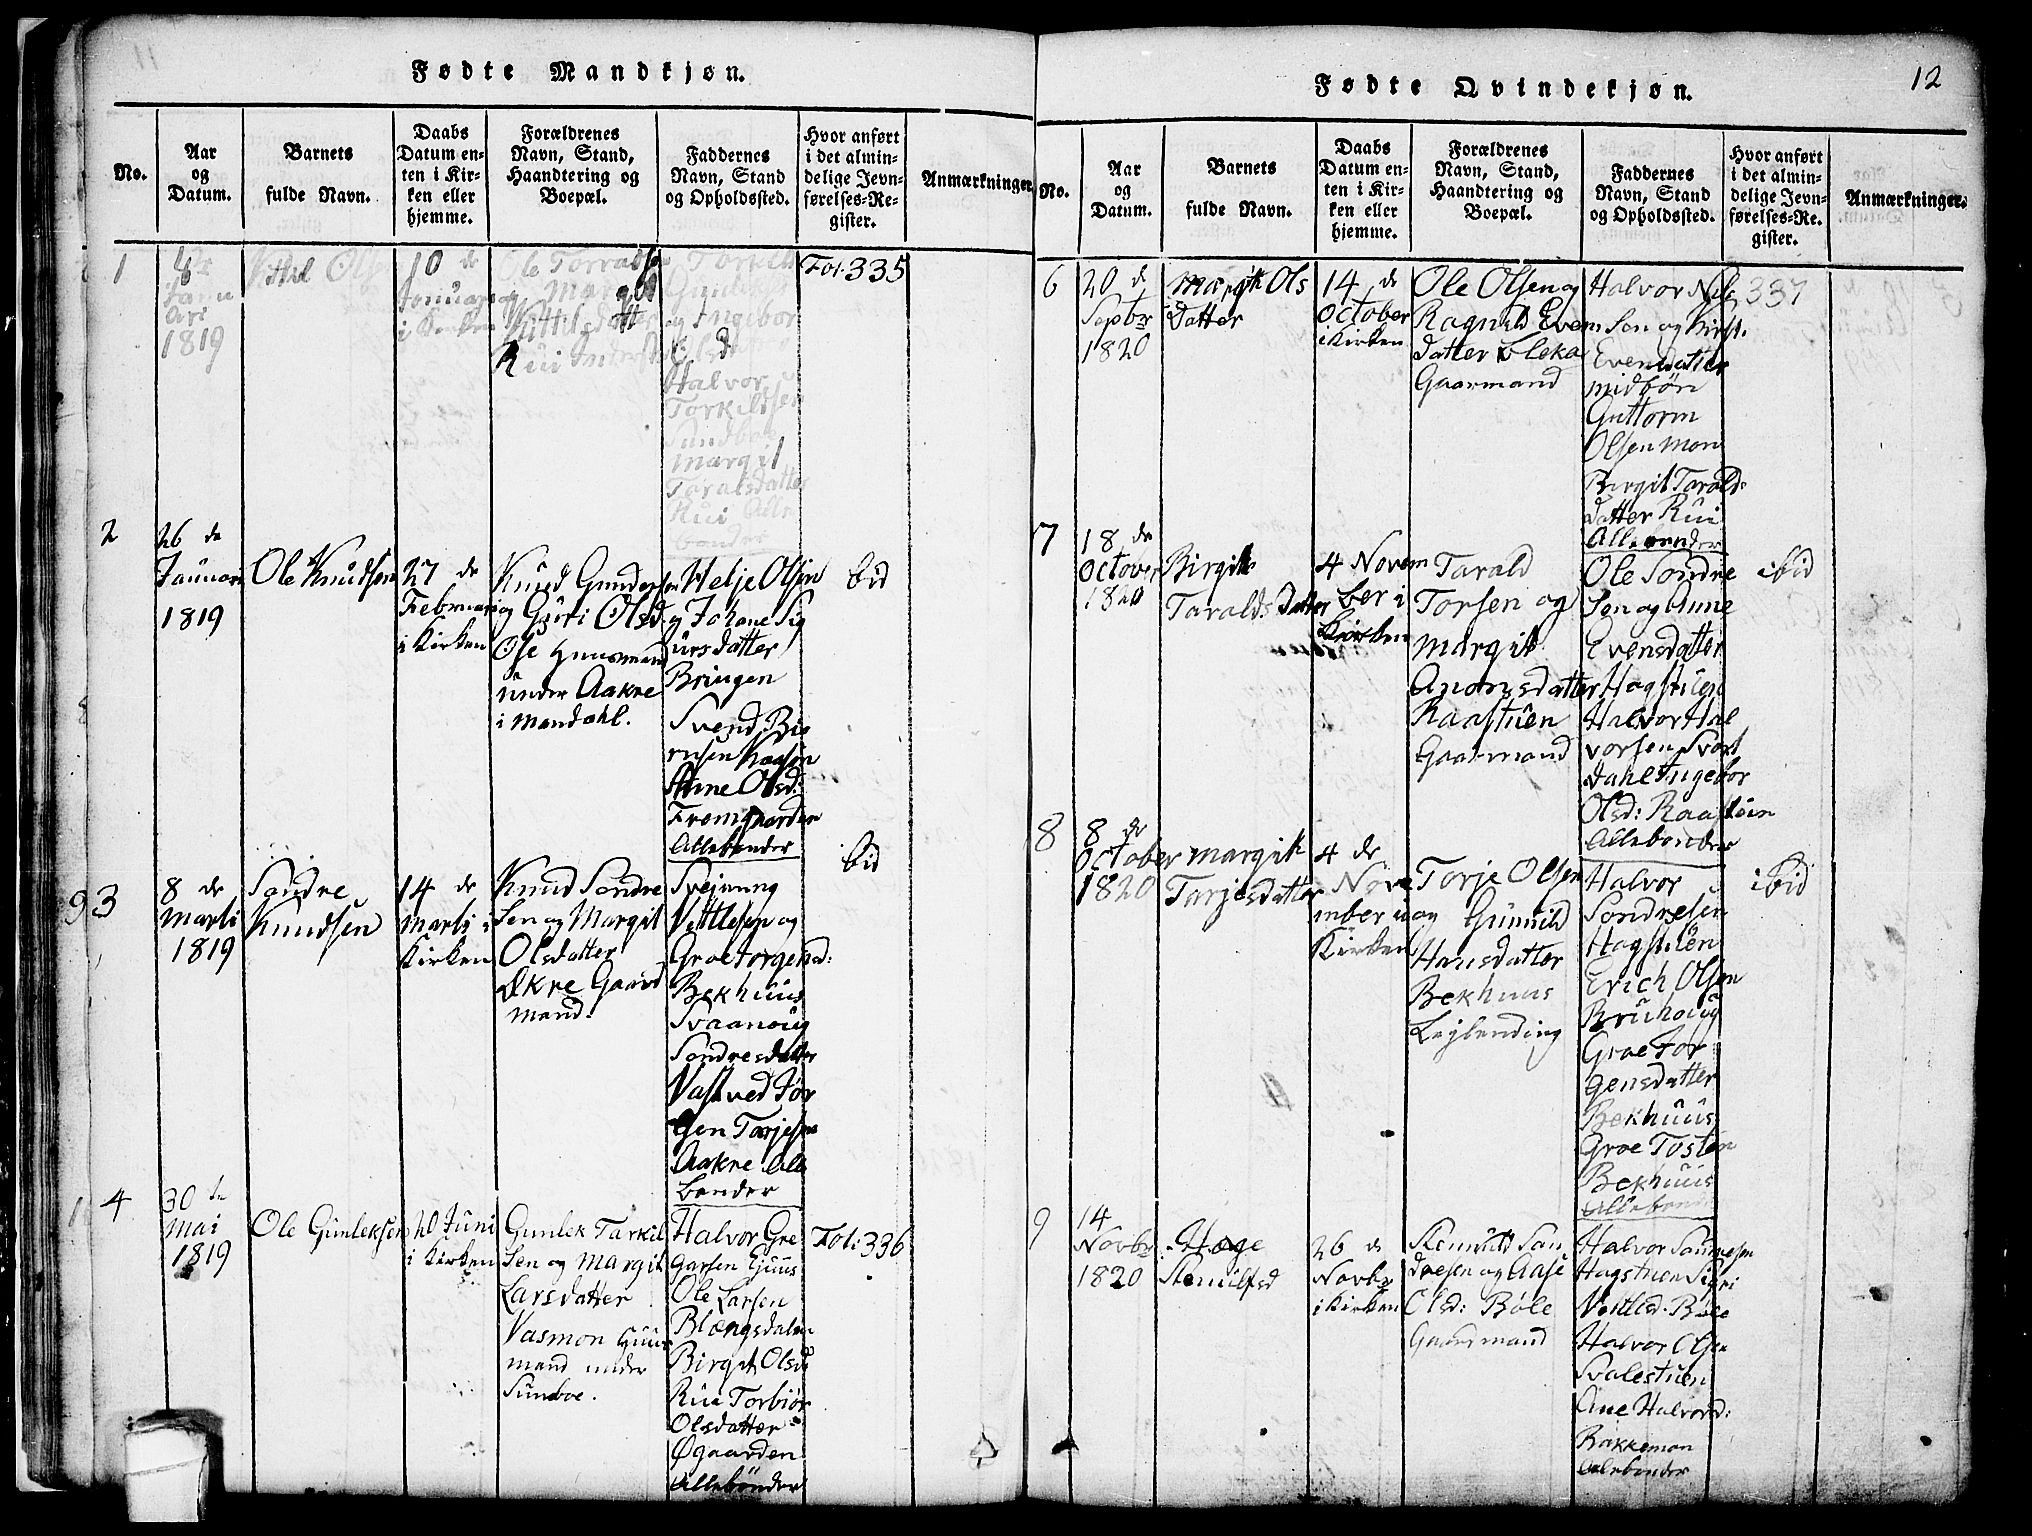 Fødte Mandkjøn.
No.
Aar
og
Datum.
Barnets
fulde Navn.
Daabs
Datum en-
ten i Kir-
ken eller
hjemme.
Forældrenes
Navn, Stand,
Haandtering og
Boepæl.
Faddernes
Navn, Stand
og Opholdssted.
Hvor anført
i det almin-
delige Jevn-
førelses-Re-
gister.
Anmærkninger.
1
Janu
ari
1819
10 de
Januari
i Kirken
Ole
Margit
Kittilsdatter
Rui
og Ingebor
Olsd
Halvor
Torkilsen
Sundboe
Margit
Taralsdatter
Rui Alle
bønder
Fol. 335
2
26 de
Januari
1819
Ole Knudsen
27 de
Februari
i Kirken
Knud Gunders
og Guri Olsd.
Huusmand
under Aakre
i Mandahl.
Helje Olsen
Johane Sig
ursdatter
Bringen
Svend Biø
rnsen Kaasen
Anne Olsd:
Fremgaarden
Allebønder
ibid
3
8 de
Marti
1819
Sondre
Knudsen
14 de
Marti i
Kirken
Knud Sondre
Sen og Margit
Olsdatter
Økre Gaard
mand.
Svejnung
Vettlesen og
Groe Jorgensd:
Bekhuus
Svaanoug
Sondresdatter
Vastved Jør
gen Torjesen
Aakre Alle
bønder
ibid
4
30 de
Mai
1819
Ole Gunleksen
20 Juni
i Kirken
Gunlek Tarkil
Sen og Margit
Larsdatter
Vasmon Huus
mand under
Sundboe.
Halvor Gre
garsen Gjuus
Ole Larsen
Blængsdalen
Birgit Olsd
Rui Torbiør
Olsdatter
Øgaarden
Allebønder
Fol: 336
Fødte Qvindekjøn.
12
No.
Aar
og
Datum.
Barnets
fulde Navn.
Daabs
Datum en-
ten i Kir-
ken eller
hjemme.
Forældrenes
Navn, Stand,
Haandtering og
Boepæl.
Faddernes
Navn, Stand
og Opholdssted.
Hvor anført
i det almin-
delige Jevn-
førelses-Re-
gister.
Anmærkninger.
6
20 de
Septbr
1820
Margit Ols
Datter
14 de
October
i Kirken
Ole Olsen og
Ragnild Even
datter Bleka
Gaarmand
Halvor Nils
Sen og Kirst.
Evensdatter
Midbøen
Guttorm
Olsen Mon
Birgit Tarald
datter Rui
Allebønder
337
7
18 de
October
1820
Birgit
Taralds Datter
4 Novem
ber i
Kirken
Tarald
Torsen og
Margit
Anonsdatter
Raastuen
Gaarmand
Ole Sondre
Sen og Anne
Evensdatter
Hagstuen
Halvor Hal
vorsen Svart
dahl Ingebor
Olsd: Raastuen
Allebønder
ibid
8
8 de
October
1820
Margit
Tarjesdatter
4 de
Nove
mber i
Kirken
Torje Olsen
og Gunnild
Hansdatter
Bekhuus
Lejlending
Halvor
Sondresen
Hagstuen
Erich Olsen
Bruhoug
Groe Jør
gensdatter
Bekhuus
Groe Tosten
Bekhuus
Allebønder
ibid
9
14
Novbr
1820
Hæge
26 de
Novbr
i Kirken
dresen og Aase
Olsd: Bøle
Gaardmand
Halvor
Hagstuen Sigri
Vettlsd. Bøle
Halvor Olsen
Svalestuen
Ane Halvord:
Bakkemon
Allebønder